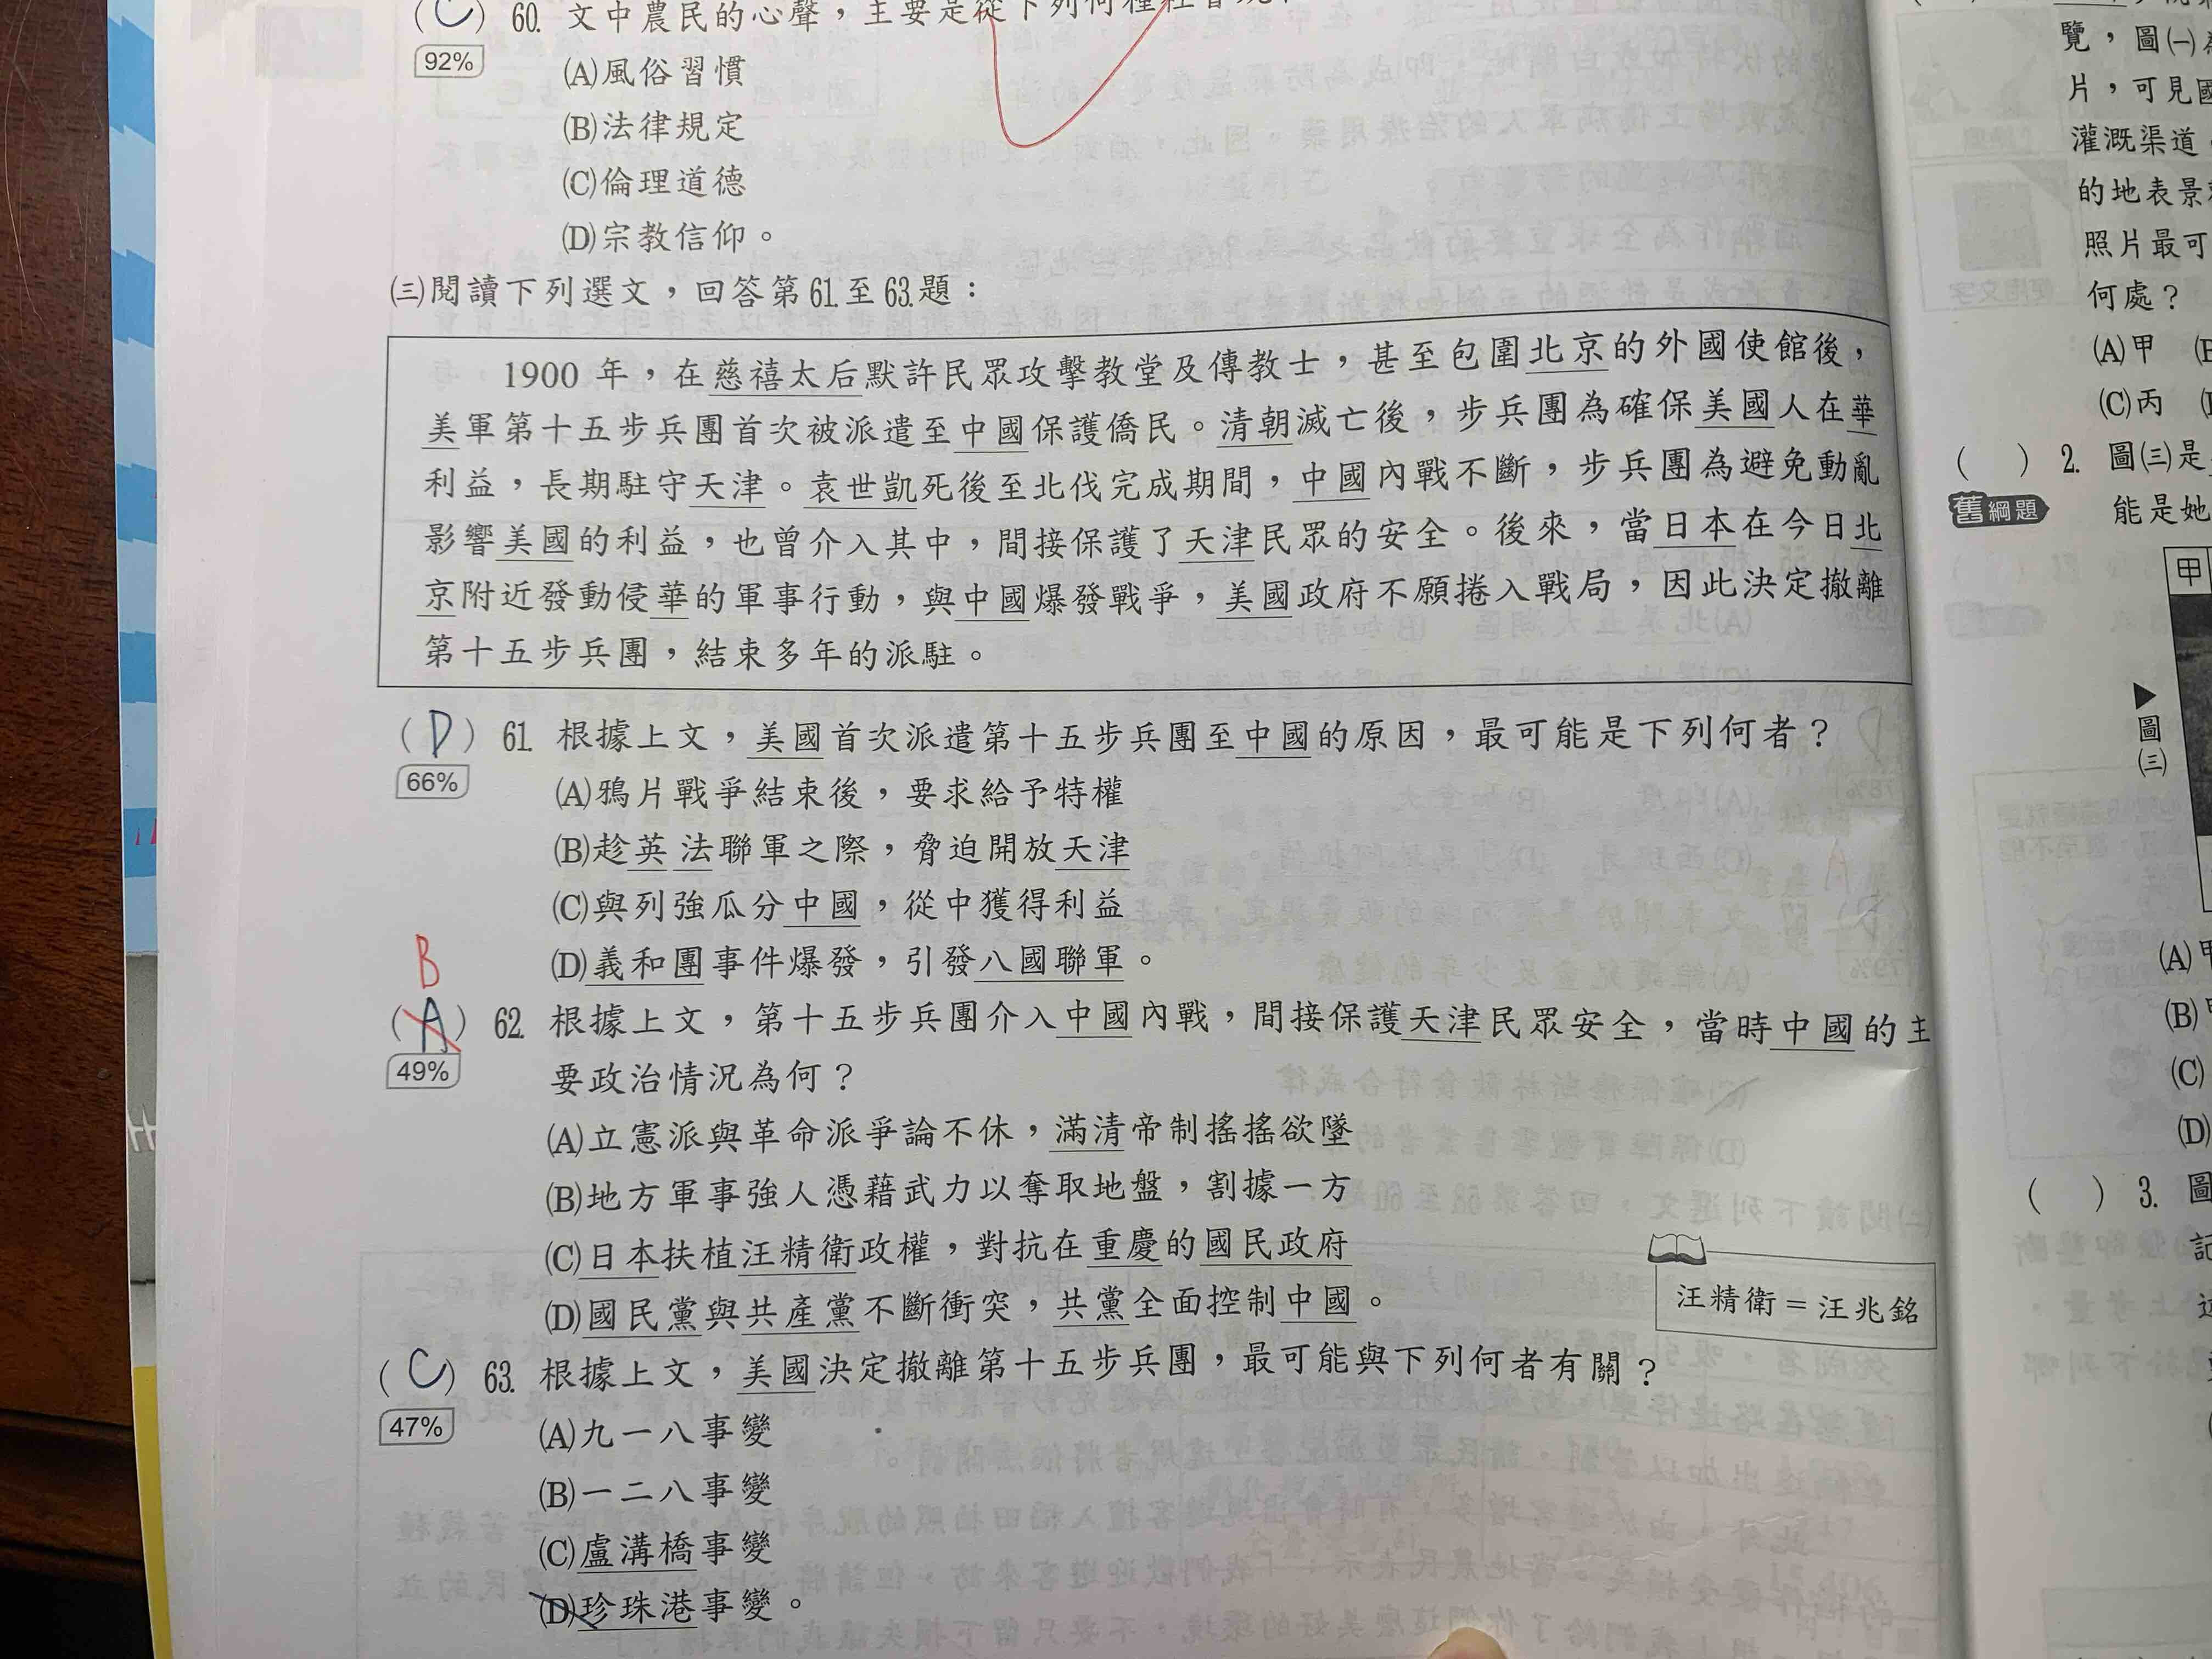 (C) 60. 文中農民的心聲，主要是從下列何種社會規
92%
(A)風俗習慣
(B)法律規定
(C)倫理道德
(D)宗教信仰。
㈢閱讀下列選文，回答第61.至63.題：
1900 年，在慈禧太后默許民眾攻擊教堂及傳教士，甚至包圍北京的外國使館後，
美軍第十五步兵團首次被派遣至中國保護僑民。清朝滅亡後，步兵團為確保美國人在華
利益，長期駐守天津。袁世凱死後至北伐完成期間，中國內戰不斷，步兵團為避免動亂
影響美國的利益，也曾介入其中，間接保護了天津民眾的安全。後來，當日本在今日北
京附近發動侵華的軍事行動，與中國爆發戰爭，美國政府不願捲入戰局，因此決定撤離
第十五步兵團，結束多年的派駐。
(D) 61. 根據上文，美國首次派遣第十五步兵團至中國的原因，最可能是下列何者？
66%
(A)鴉片戰爭結束後，要求給予特權
(B)趁英 法聯軍之際，脅迫開放天津
(C)與列強瓜分中國，從中獲得利益
(D)義和團事件爆發，引發八國聯軍。
B
(A) 62. 根據上文，第十五步兵團介入中國內戰，間接保護天津民眾安全，當時中國的主
49%
要政治情況為何？
(A)立憲派與革命派爭論不休，滿清帝制搖搖欲墜
(B)地方軍事強人憑藉武力以奪取地盤，割據一方
(C)日本扶植汪精衛政權，對抗在重慶的國民政府
(D)國民黨與共產黨不斷衝突，共黨全面控制中國。
汪精衛＝汪兆銘
(C) 63. 根據上文，美國決定撤離第十五步兵團，最可能與下列何者有關？
47%
(A)九一八事變
(B)一二八事變
(C)盧溝橋事變
(D)珍珠港事變。
覽，圖㈠
片，可見國
灌溉渠道
的地表景
照片最可
何處？
(A)甲
(C)丙
( ) 2. 圖㈢是
舊綱題
能是她
甲
▶圖㈢
(A)甲
(B)
(C)
(D)
( ) 3. 圖